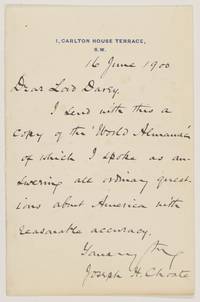 1, CARLTON HOUSE TERRACE,
S.W.
16 June 1900
Dear Lord Davey.
I send with this a
copy of the 'World Almanac'
of which I spoke as an-
swering all ordinary quest
ions about America with
reasonable accuracy.
Yours very truly
Joseph H. Choate